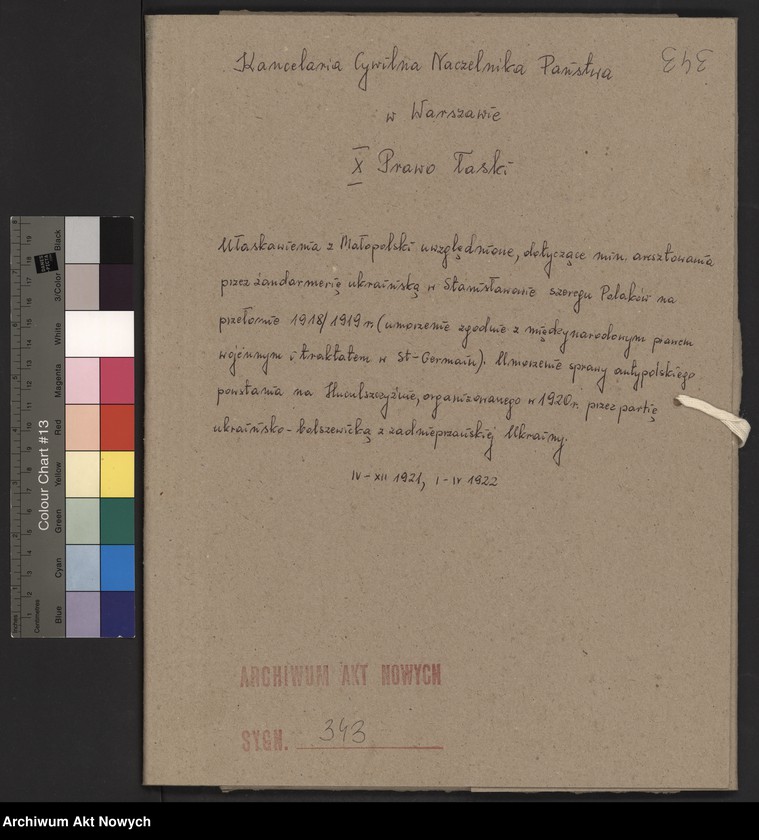 Kancelaria Cywilna Naczelnika Państwa
343
w Warszawie
X Prawo Łaski
Ułaskawienia z Małopolski uwzględnione, dotyczące min. aresztowania
przez żandarmerię ukraińską w Stanisławowie szeregu Polaków na
przełomie 1918/1919 r. (umorzenie zgodnie z międzynarodowym prawem
wojennym i traktatem w St-Germain). Umorzenie sprawy antypolskiego
powstania na Huculszczyźnie, organizowanego w 1920 r. przez partię
ukraińsko-bolszewicką z zadnieprzańskiej Ukrainy.
IV-XII 1921, I-IV 1922
ARCHIWUM AKT NOWYCH
SYGN. 343
Colour Chart #13
Blue
Cyan
Green
Yellow
Red
Magenta
White
3/Color
Black
Inches
Centimetres
Archiwum Akt Nowych